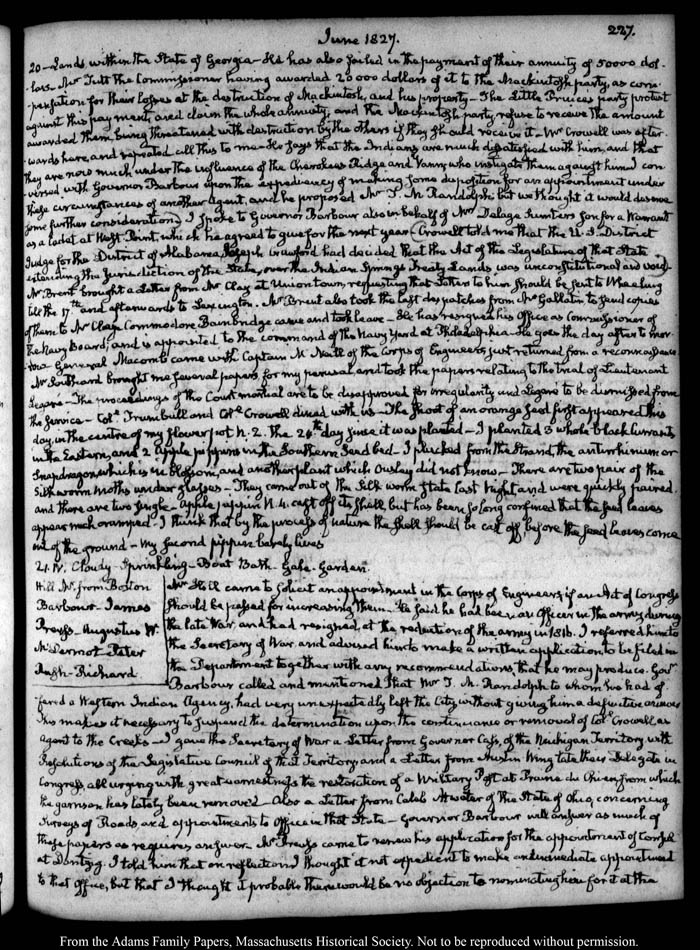 June 1827.
227.
20 - Lands within the State of Georgia - He has also failed in the payment of their annuity of 50000 dol-
-lars. Mr Tutt the Commissioner having awarded 20000 dollars of it to the Mackintosh party, as com-
-pensation for their losses at the destruction of Mackintosh, and his property - The Little Princes party protest
against this payment, and claim the whole annuity, and the Mackintosh party refuse to receive the amount
awarded them being threatened with destruction by the others if they should receive it - Mr Crowell was after-
wards here, and repeated all this to me - He says that the Indians are much dissatisfied with him, and that
they are now much under the influence of the Cherokees Ridge and Vann, who instigate them against him. I con-
-versed with Governor Barbour upon the expediency of making some disposition for an appointment under
these circumstances of another Agent, and he proposed Mr T. M. Randolph; but we thought it would deserve
some further consideration. I spoke to Governor Barbour also in behalf of Mrs Delage Sumters Son for a Warrant
as a Cadet at West Point, which he agreed to give for the next year - Crowell told me that the U.S. District
Judge for the District of Alabama, Joseph Crawford had decided that the Act of the Legislature of that State
extending the Jurisdiction of the State, over the Indian Springs Treaty Lands was unconstitutional and void -
Mr Brent brought a Letter from Mr Clay at Uniontown, requesting that Letters to him should be sent to Wheeling
till the 17th and afterwards to Lexington. Mr Brent also took the last dispatches from Mr Gallatin to send copies
of them to Mr Clay. Commodore Bainbridge came and took leave - He has resigned his Office as Commissioner of
the Navy Board, and is appointed to the command of the Navy Yard at Philadelphia - He goes the day after to mor-
-row. General Macomb came with Captain M. Neill of the Corps of Engineers just returned from a reconnaissance.
Mr Southard brought me several papers for my perusal and took the papers relating to the trial of Lieutenant
Legare - The proceedings of the Court martial are to be disapproved for irregularity and Legare to be dismissed from
the Service - Colo. Trumbull and Colo. Crowell dined with us - The shoot of an orange seed first appeared this
day, in the centre of my flower pot N. 2. The 26th day since it was planted - I planted 3 whole black currants
in the Eastern, and 2 apple pippins in the Southern Seed bed - I plucked from the Strand, the antirrhinum or
Snapdragon, which is in blossom, and another plant which Ousley did not know - There are two pair of the
Silk worm moths under glasses - They came out of the Silk worm State last Night and were quickly paired
and there are two single - Apple pippin N. 4. cast off its shell, but has been so long confined that the seed leaves
appear much cramped - I think that by the process of nature the shell should be cast off, before the seed leaves come
out of the ground - My second pippin barely lives
21. IV. Cloudy - Sprinkling - Boat Bath - Gale. Garden.
Hill Mr. from Boston
Barbour - James
Preuss - Augustus W.
McDermot - Peter
Rush - Richard
Mr Hill came to solicit an appointment in the Corps of Engineers, if an Act of Congress
should be passed for increasing them - He said he had been an Officer in the army during
the late War, and had resigned, at the reduction of the army in 1816. I referred him to
the Secretary of War, and advised him to make a written application, to be filed in
the Department together with any recommendations, that he may produce. Govr.
Barbour called and mentioned that Mr T. M. Randolph to whom he had of-
-fered a Western Indian Agency, had very unexpectedly left the City, without giving him a definitive answer
This makes it necessary to suspend the determination upon the continuance or removal of Colo. Crowell, as
agent to the Creeks - I gave the Secretary of War a Letter from Governor Cass, of the Michigan Territory with
Resolutions of the Legislative Council of that Territory, and a Letter from Austin Wing late their Delegate in
Congress, all urging with great earnestness the restoration of a Military Post at Prairie du Chien, from which
the garrison has lately been removed - Also a Letter from Caleb Atwater of the State of Ohio, concerning
Surveys of Roads and appointments to Office in that State - Governor Barbour will answer as much of
these papers as requires answer. Mr Preuss came to renew his application for the appointment of Consul
at Dantzig. I told him that on reflection I thought it not expedient to make an immediate appointment
to that Office, but that I thought it probable there would be no objection to nominating him for it at the
From the Adams Family Papers, Massachusetts Historical Society. Not to be reproduced without permission.